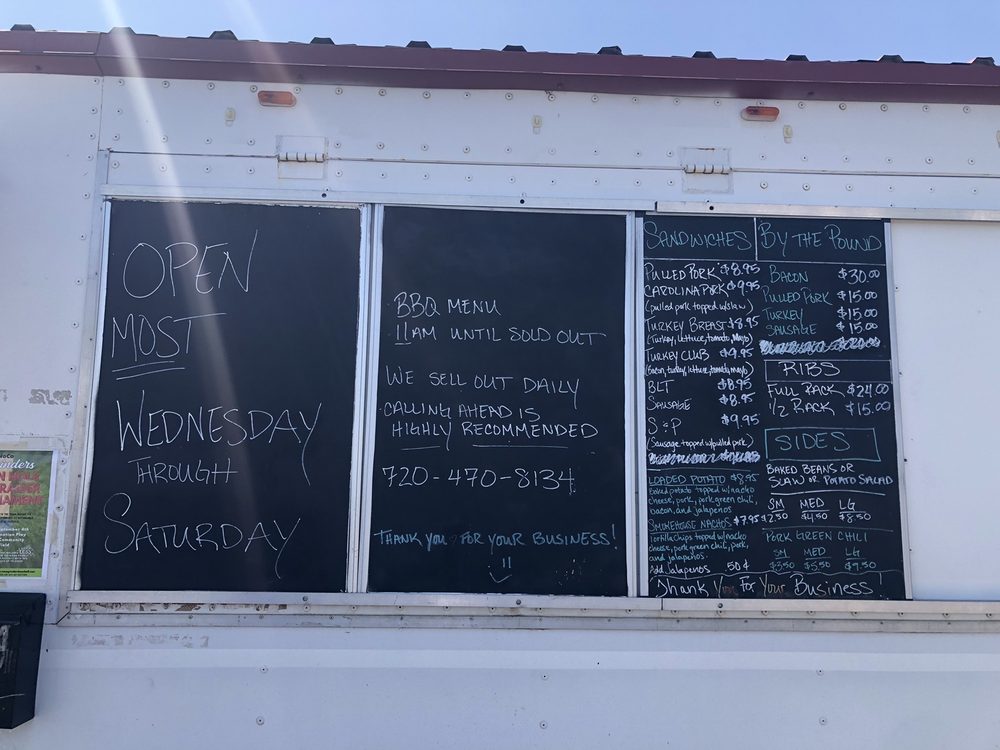 OPEN
MOST
WEDNESDAY
THROUGH
SATURDAY
BBQ MENU
11AM UNTIL SOLD OUT
WE SELL OUT DAILY
CALLING AHEAD IS
HIGHLY RECOMMENDED
720-470-8134
THANK YOU FOR YOUR BUSINESS!
SANDWICHES
PULLED PORK $8.95
CAROLINA PORK $9.95
(pulled pork topped w/slaw)
TURKEY BREAST $8.95
(Turkey, lettuce, tomato, Mayo)
TURKEY CLUB $9.95
(Bacon, turkey, lettuce, tomato, mayo)
BLT $8.95
SAUSAGE $8.95
S & P $9.95
(Sausage topped w/pulled pork)
LOADED POTATO $8.95
Baked potato topped w/nacho
cheese, pork, pork green chili,
bacon, and jalapenos
SMOKEHOUSE NACHOS $7.95
Tortilla Chips topped w/nacho
cheese, pork green chili, pork,
and jalapenos.
Add Jalapenos 50¢
BY THE POUND
BACON $30.00
PULLED PORK $15.00
TURKEY $15.00
SAUSAGE $15.00
RIBS
FULL RACK $24.00
1/2 RACK $15.00
SIDES
BAKED BEANS OR
SLAW OR POTATO SALAD
SM MED LG
$2.50 $4.50 $8.50
PORK GREEN CHILI
SM MED LG
$3.50 $5.50 $9.50
Thank You For Your Business